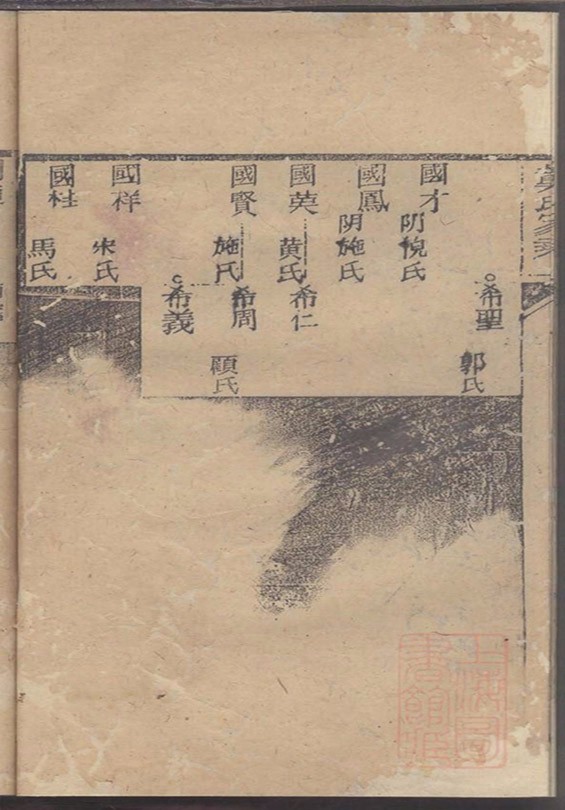 希聖
郭氏
國才
阴倪氏
國鳳
阴施氏
國英
黄氏
希仁
國賢
施氏
希周
顧氏
希義
國祥
宋氏
國桂
馬氏